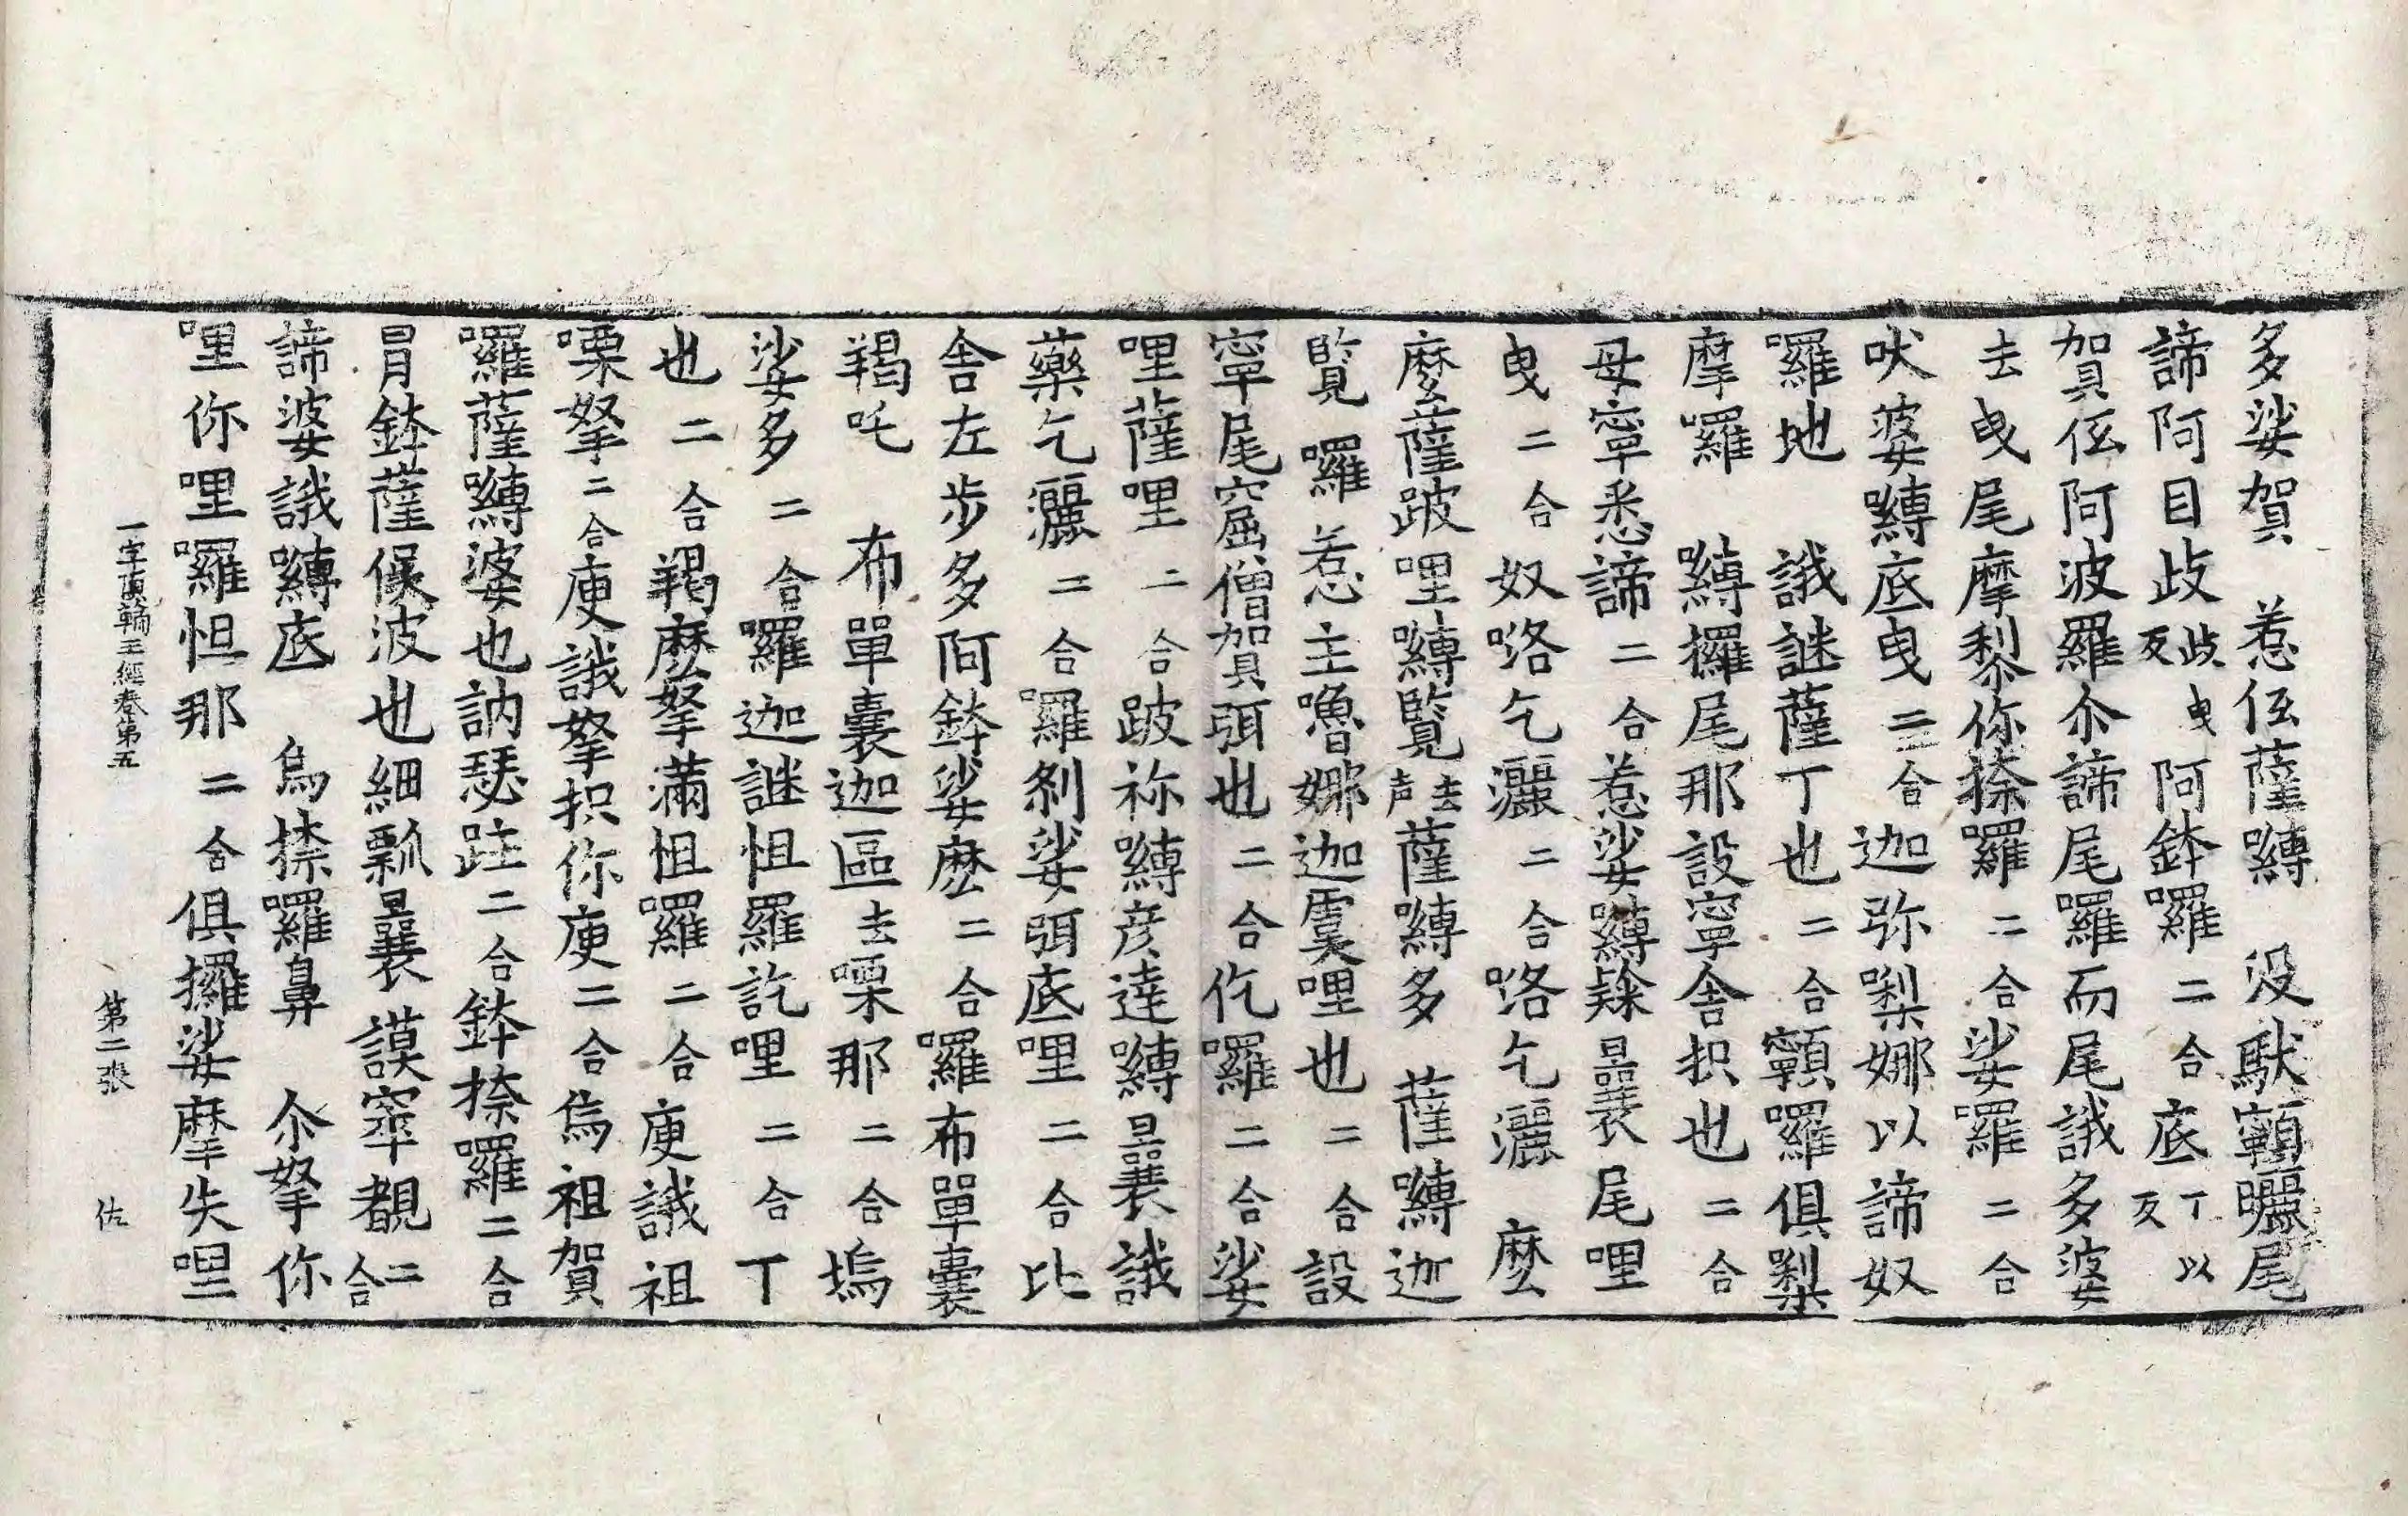 多娑賀 惹伭薩嚩 没馱顐曬尾
諦阿目歧歧曳反阿鉢羅二合底丁以反
賀伭阿波羅尒諦尾羅而尾誐多婆
去曳尾摩黎你捺羅二合娑羅二合
吠婆嚩底曳二合迦弥㘑娜以諦奴
羅地 誐謎薩丁也二合顐羅俱㘑
摩羅 嚩攞尾那設寧舍抧也二合
母寧悉諦二合惹娑嚩曩尾哩
曳二合奴咯乞灑二合咯乞灑 麽
麽薩跛哩嚩覽去声薩嚩多 薩嚩迦
覽囉惹主嚕娜迦虞哩也二合設
寧尾窟僧賀弭也二合仡囉二合娑
哩薩哩二合跛祢嚩彥達嚩曩誐
藥乞灑二合羅剎娑弭底哩二合比
舍左步多阿鉢娑麽二合囉布單囊
羯吒 布單囊迦區去㗚那二合塢
娑多二合囉迦謎怛羅訖哩二合丁
也二合羯麽拏滿怛囉二合庾誐祖
㗚拏二合庾誐拏抧你庾二合烏祖賀
囉薩嚩婆也訥瑟跓二合鉢捺囉二合
冐鉢薩儑波也細瓢曩謨窣覩二合
諦婆誐嚩底 烏捺囉鼻 尒拏你
哩你哩囉怛那二合俱攞娑摩失哩
一字頂輪王經卷第五 第二張 佐